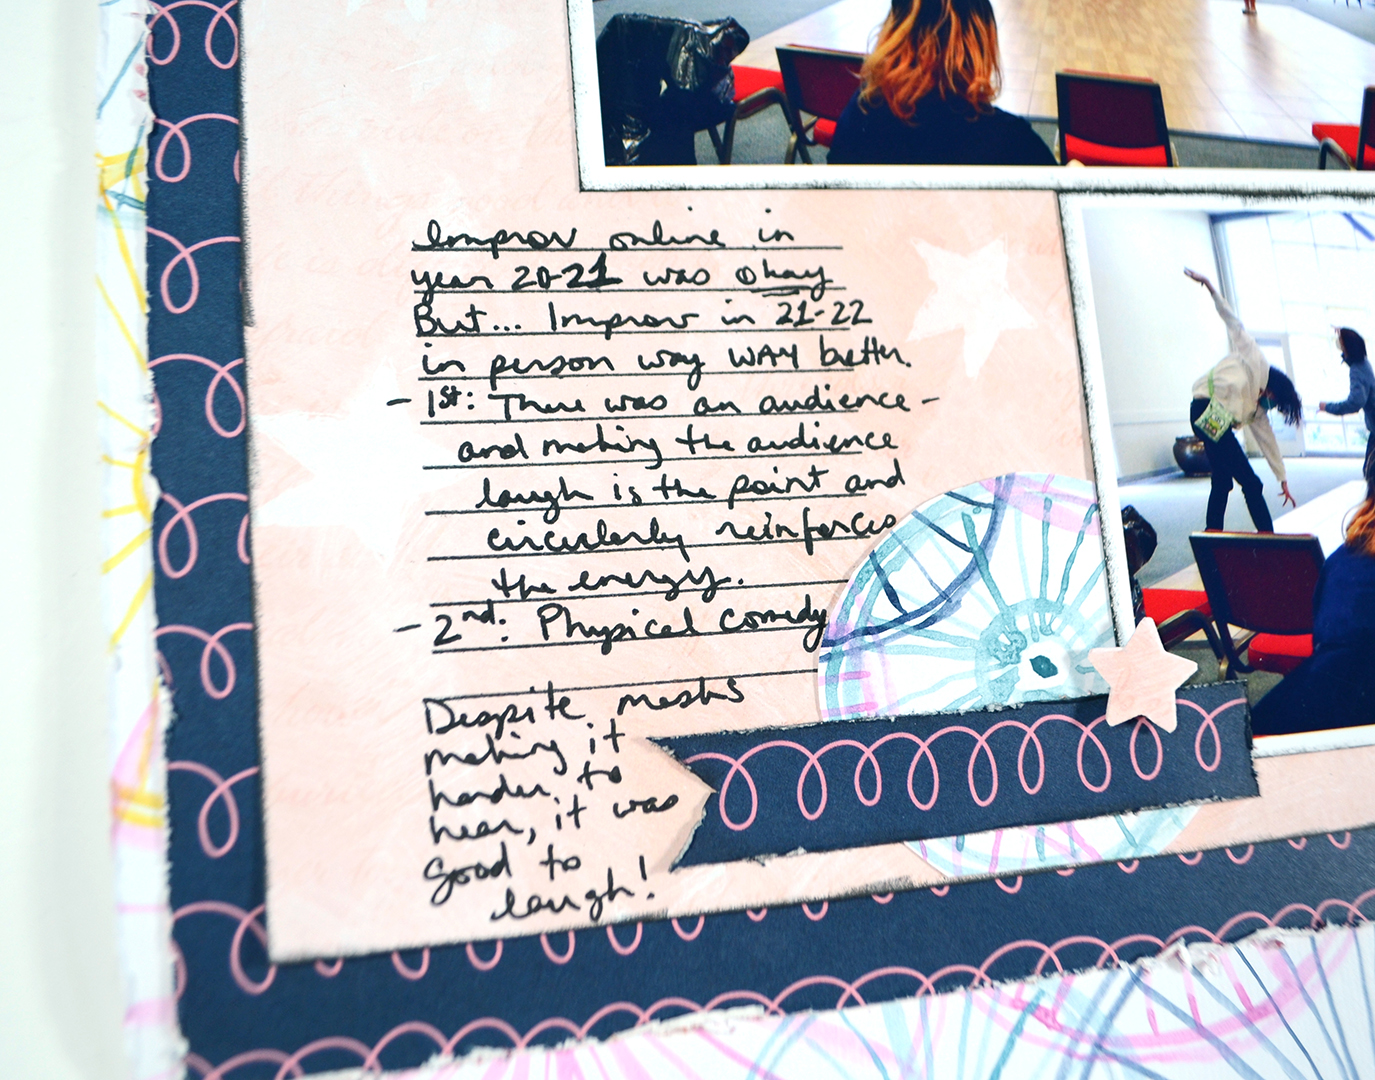 Improv online in
year 20-21 was okay
But... Improv in 21-22
in person way WAY better.
- 1st: There was an audience -
and making the audience
laugh is the point and
circularly reinforces
the energy.
- 2nd: Physical comedy
Despite masks
making it
harder to
hear, it was
good to
laugh!